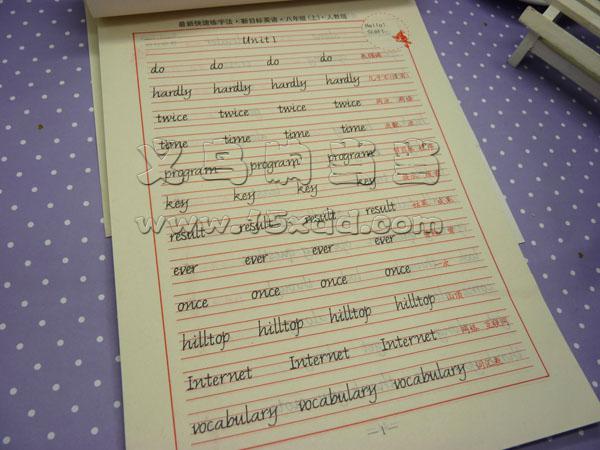 最新快速练字法·新目标英语·八年级(上)·人教版
Hello!
Start.
Unit 1
do do do do
hardly hardly hardly hardly
twice twice twice twice
time time time time
program program program
key key key key
result result result result
ever ever ever ever
once once once once
hilltop hilltop hilltop hilltop 山顶
Internet Internet Internet 网络 互联网
vocabulary vocabulary vocabulary 词汇表
1
www.15xdd.com